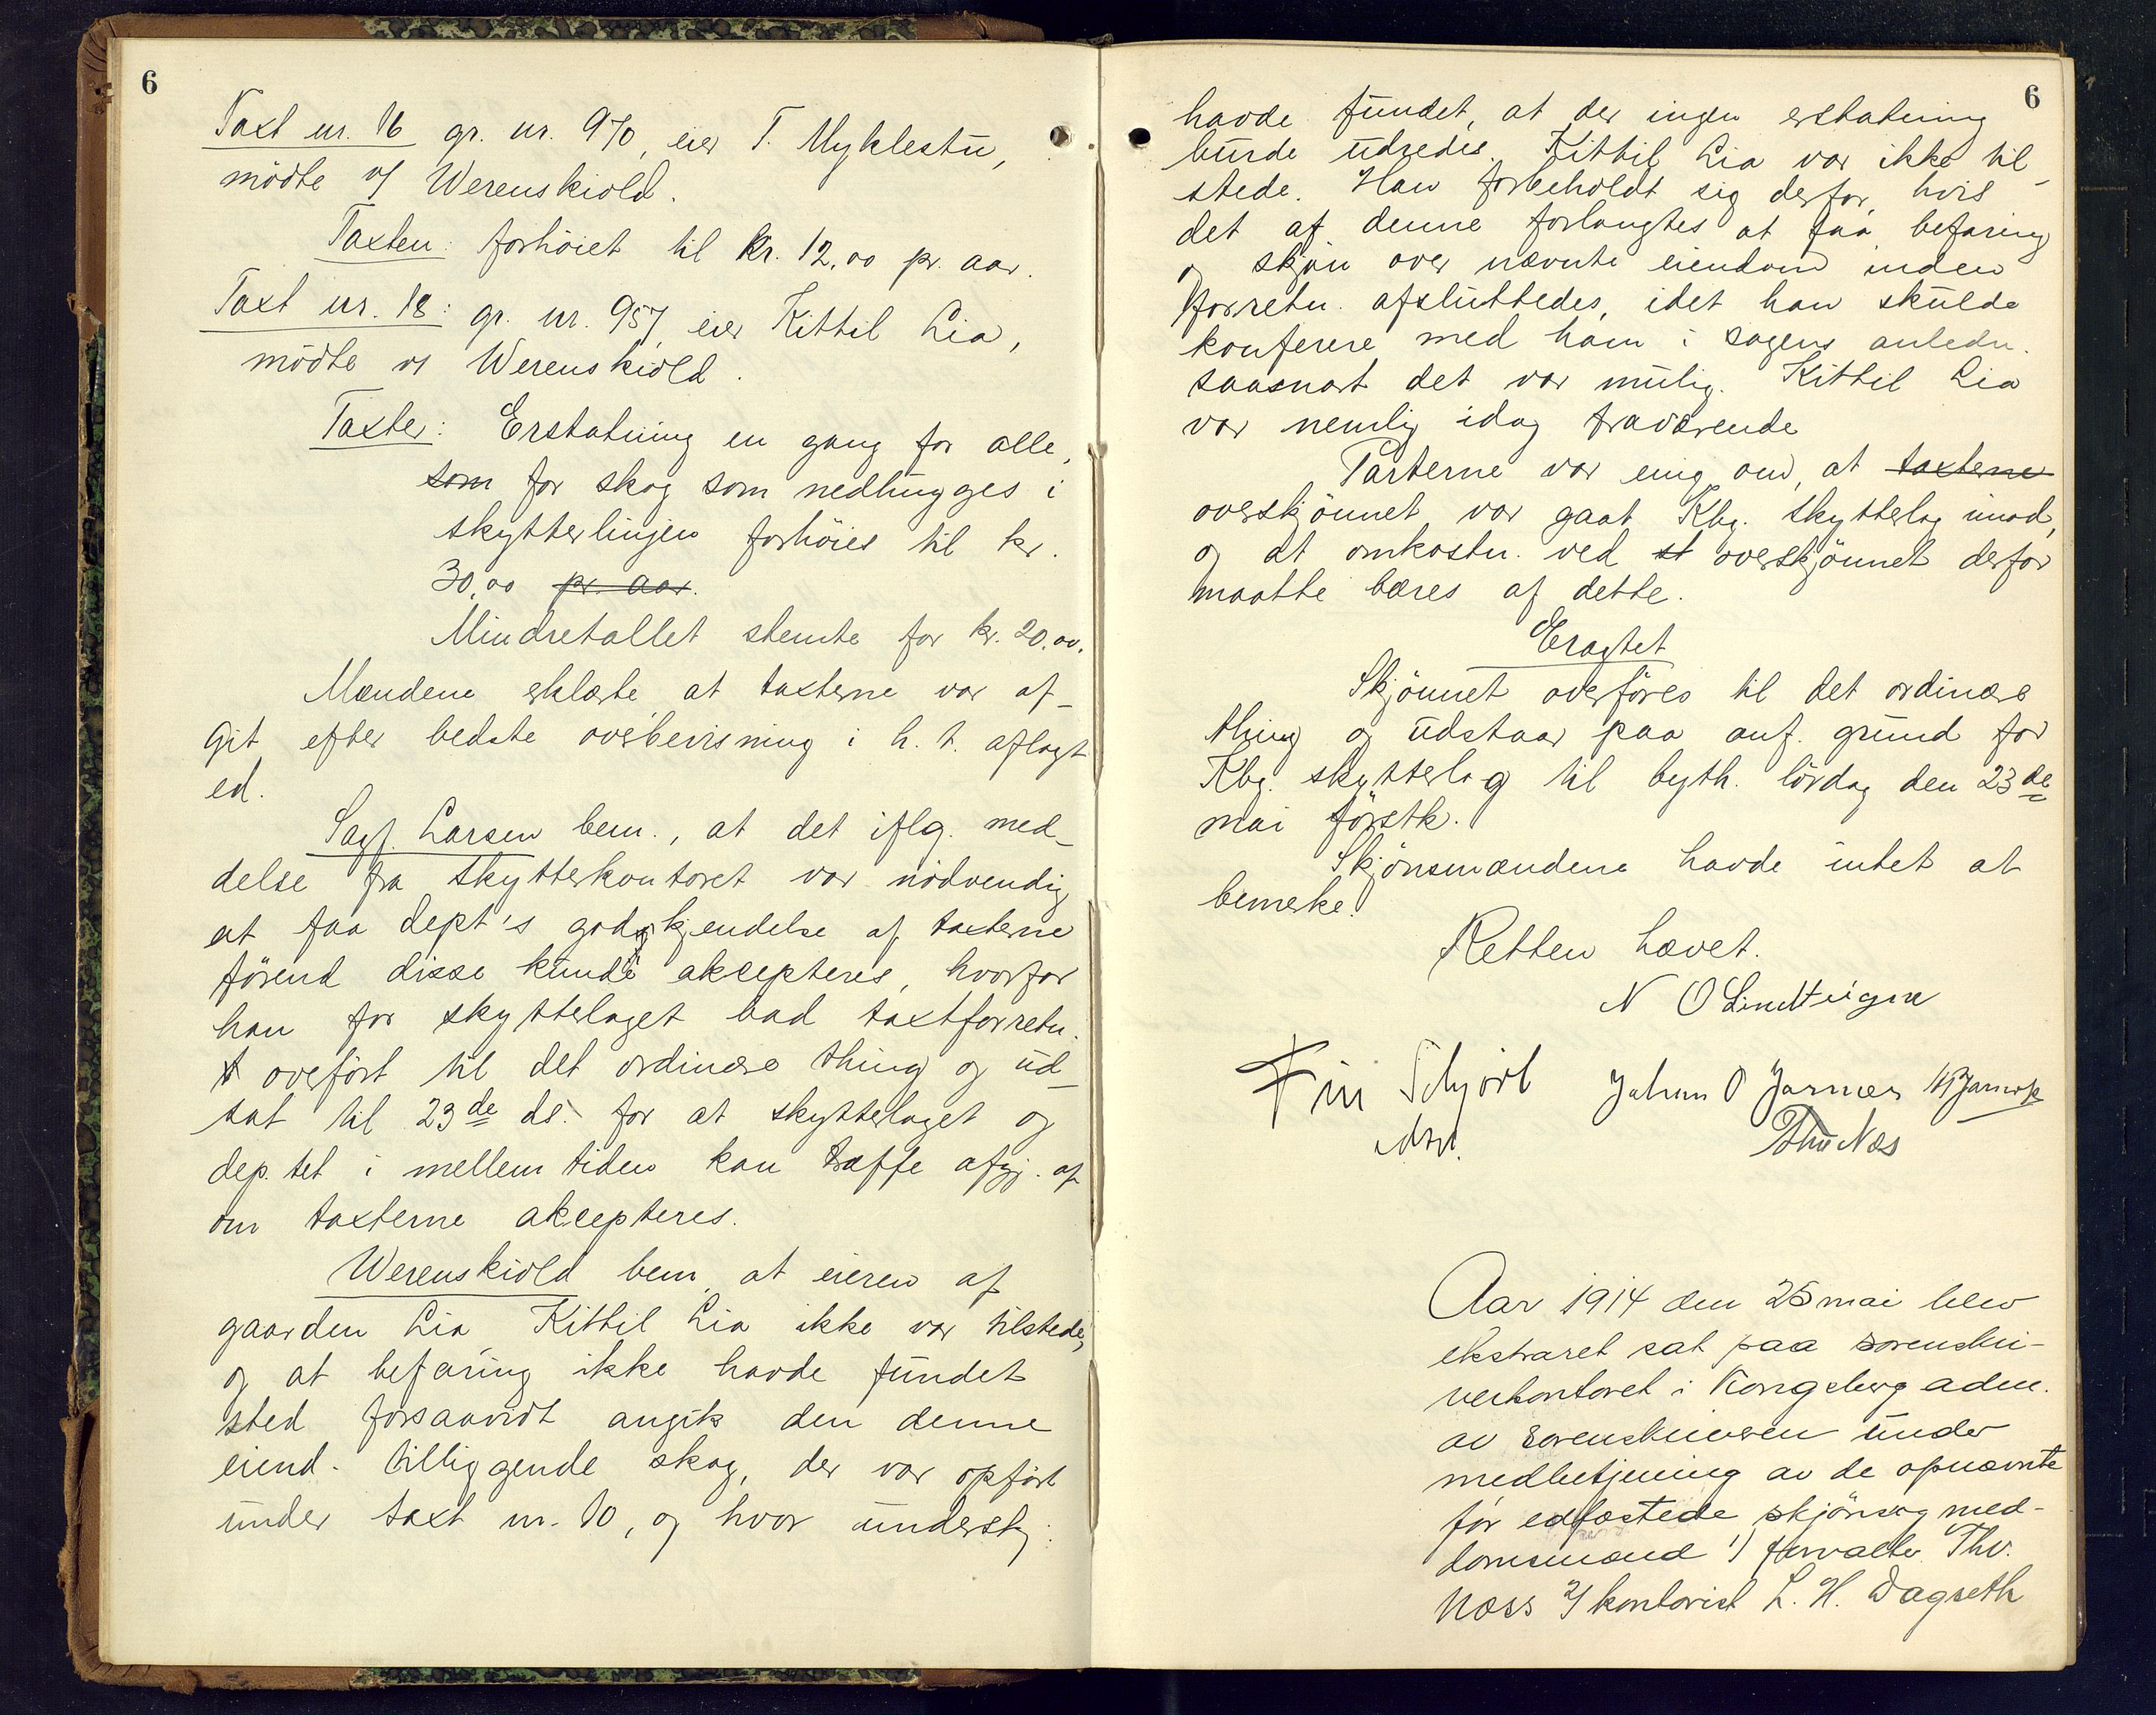 6
Taxt nr. 16 gr. nr. 970, eier T. Myklestu,
mödte v/ Werenskiold.
Taxten: forhöiet til kr. 12,00 pr. aar.
Taxt nr. 18: gr. nr. 957, eier Kittil Lia,
mödte v/ Werenskiold.
Taxter: Erstatning en gang for alle,
som for skog som nedhugges i
skytterlinjen forhöies til kr.
30,00 pr. aar.
Mindretallet stemte for kr. 20.00.
Mændene erklærte at taxterne var af-
git efter bedste overbevisning i h. t. aflagt
ed.
Sagf. Larsen bem., at det iflg. med-
delse fra skytterkontoret var nödvendig
at faa dept's godkjendelse af taxterne
förend disse kunde akcepteres, hvorfor
han for skytterlaget bad taxtforretn.
overfört til det ordinære thing og ud-
sat til 23de ds. for at skytterlaget og
dep. tet i mellemtiden kan træffe afgj. af
om taxterne akcepteres.
Werenskiold bem. at eieren af
gaarden Lia Kittil Lia ikke var tilstede,
og at befaring ikke havde fundet
sted forsaavidt angik den denne
eiend. tilliggende skog, der var opfört
under taxt nr. 10, og hvor undersk.
6
havde fundet, at der ingen erstatning
burde udredes. Kittil Lia var ikke til-
stede. Han forbeholdt sig derfor, hvis
det af denne forlangtes at faa befaring
og skjön over nævnte eiendom inden
forretn. afsluttedes, idet han skulde
konferere med ham i sagens anledn.
saasnart det var mulig. Kittil Lia
var nemlig idag fraværende
Parterne var enig om, at taxterne
overskjönnet var gaat Kbg. skytterlag imod,
og at omkostn. ved st overskjönnet derfor
maatte bæres af dette.
Eragtet
Skjönnet overföres til det ordinære
thing og udstaar paa anf. grund for
Kbg. skytterlag til byth. lördag den 23de
mai förstk.
Skjönsmændene havde intet at
bemerke.
Retten hævet.
N O Lindteigen
Fin Schjöll Johan O Jarnæs
Thv Næs
Aar 1914 den 25 mai blev
ekstraret sat paa sorenskri-
verkontoret i Kongsberg adm.
av sorenskriveren under
medbetjening av de opnævnte
för edfæstede skjöns og med-
domsmænd 1) forvalter Thv.
Næss 2/ kontorist L. H. Dagseth